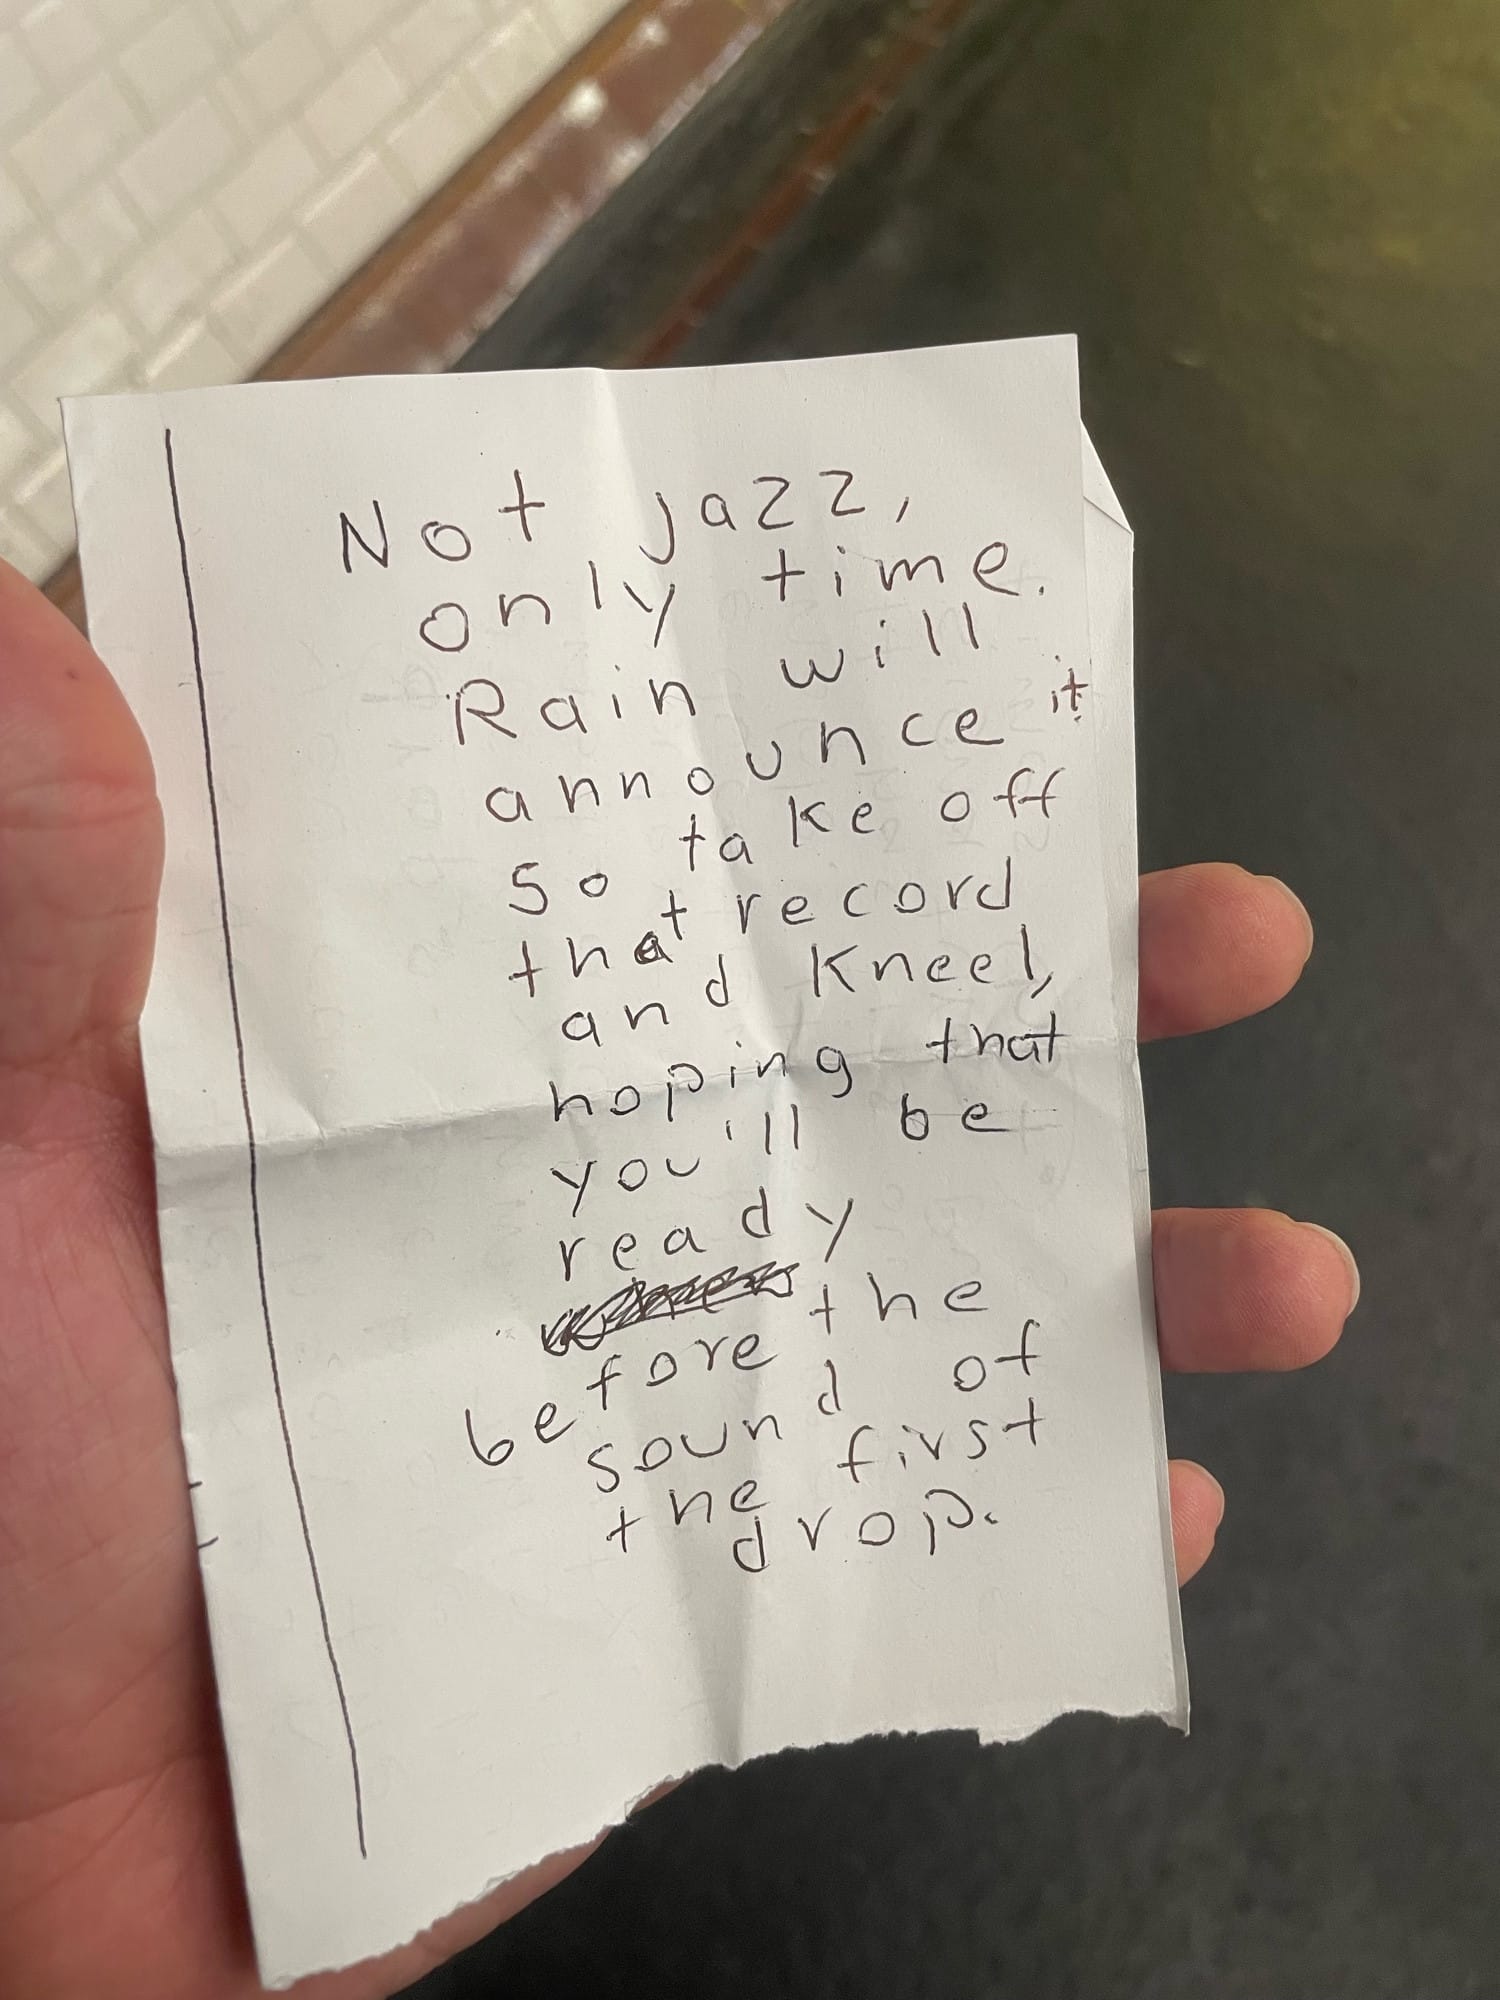 Not jazz,
only time.
Rain will
announce it
so take off
that record
and kneel,
hoping that
you'll be
ready
before the
sound of
the first
drop.